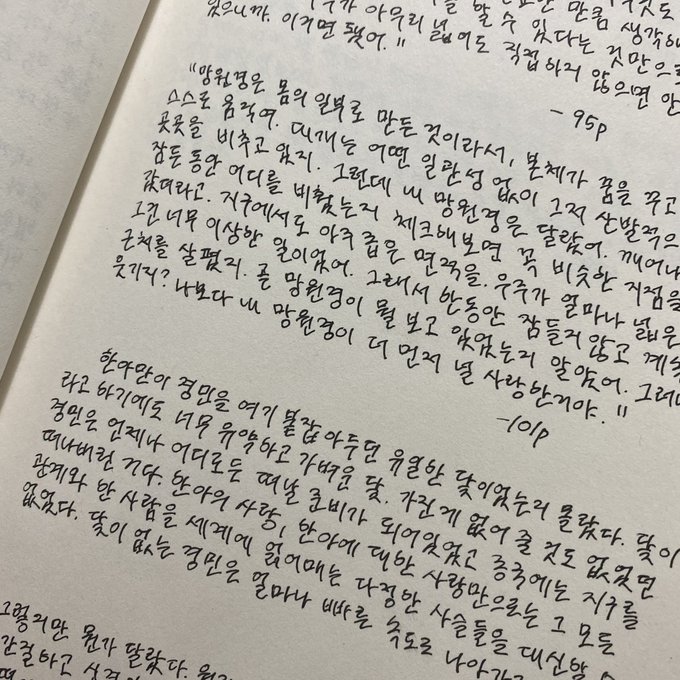 할 수 있다는 것만으로
가 아무리 넓어도 직접하지 않으면 안
있으니까. 이거면 됐어."
- 95p
"망원경은 몸의 일부로 만든 것이라서, 본체가 꿈을 꾸고
스스로 움직여. 대개는 어떤 일관성 없이 그저 산발적으
곳곳을 비추고 있지. 그런데 내 망원경은 달랐어. 깨어나
잠든 동안 어디를 비췄는지 체크해보면 꼭 비슷한 지점을
갔더라고. 지구에서도 아주 좁은 면적을. 우주가 얼마나 넓은
그건 너무 이상한 일이었어. 그래서 한동안 잠들지 않고 계속
근처를 살폈지. 곧 망원경이 뭘 보고 있었는지 알았어. 그러니
웃기지? 나보다 내 망원경이 더 먼저 널 사랑한거야."
-101p
한아만이 경민을 여기 붙잡아두던 유일한 닻이었는지 몰랐다. 닻이
라고 하기에도 너무 유약하고 가벼운 닻. 가진 게 없어 줄 것도 없었던
경민은 언제나 어디로든 떠날 준비가 되어있었고 종국에는 지구를
떠나버린 거다. 한아의 사랑, 한아에 대한 사랑만으로는 그 모든
관계와 한 사람을 세계에 얽어매는 다정한 사슬들을 대신할 수
없었다. 닻이 없는 경민은 얼마나 빠른 속도로 나아가
그렇지만 뭔가 달랐다.
간절하고